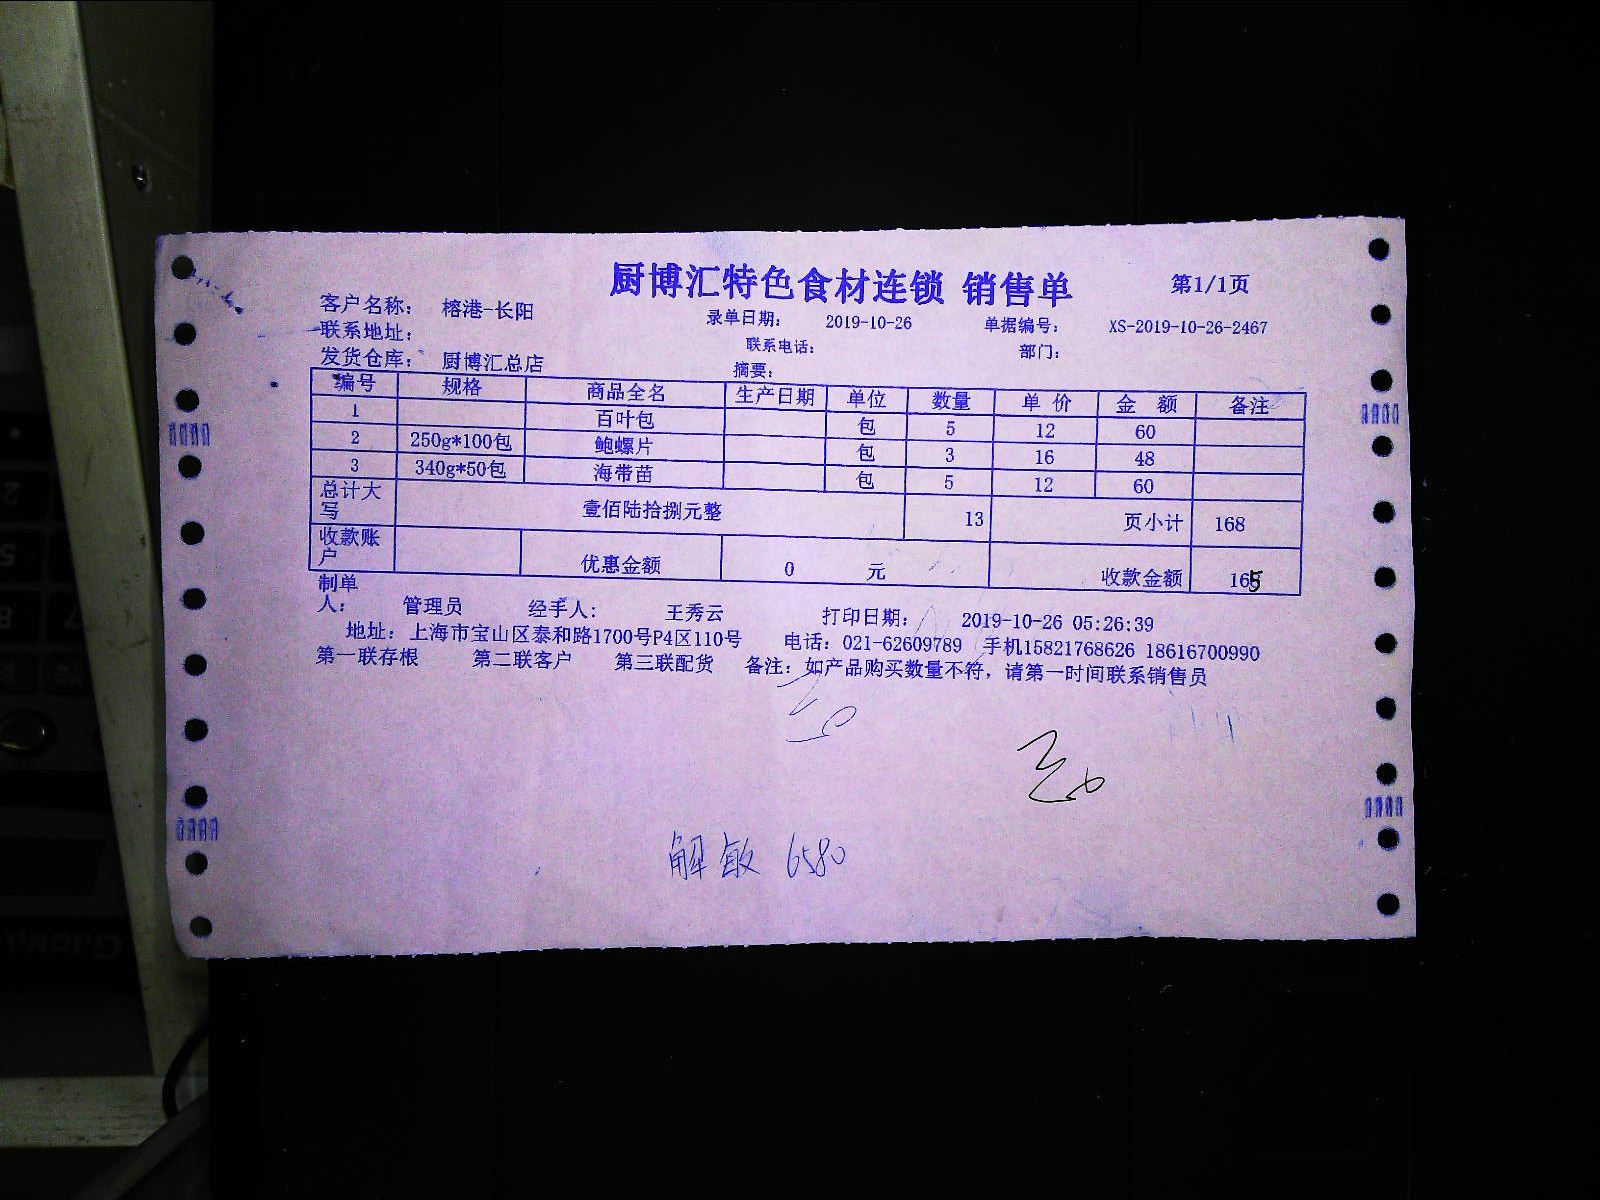 厨博汇特色食材连锁 销售单 第1/1页
客户名称: 榕港-长阳 录单日期: 2019-10-26 单据编号: XS-2019-10-26-2467
联系地址: 联系电话: 部门:
发货仓库: 厨博汇总店 摘要:
编号 规格 商品全名 生产日期 单位 数量 单 价 金 额 备注
1 百叶包 包 5 12 60
2 250g*100包 鲍螺片 包 3 16 48
3 340g*50包 海带苗 包 5 12 60
总计大写 壹佰陆拾捌元整 13 页小计 168
收款账户 优惠金额 0 元 收款金额 165
制单人: 管理员 经手人: 王秀云 打印日期: 2019-10-26 05:26:39
地址: 上海市宝山区泰和路1700号P4区110号 电话: 021-62609789 手机15821768626 18616700990
第一联存根 第二联客户 第三联配货 备注: 如产品购买数量不符, 请第一时间联系销售员
解敏 6580